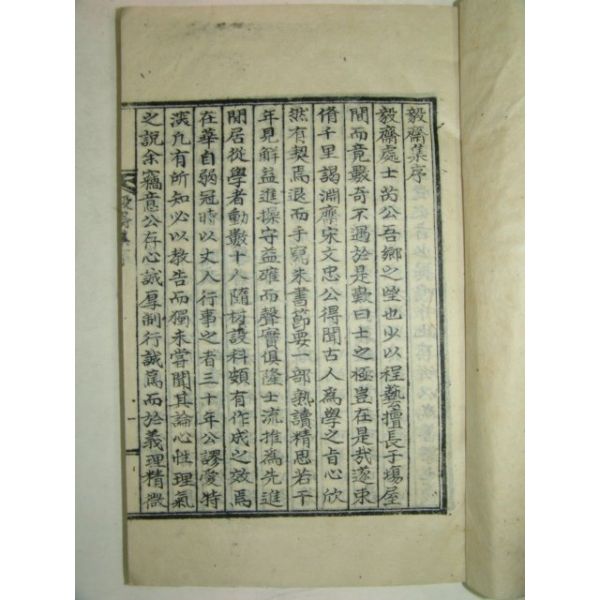 毅齋集序
毅齋處士芮公吾鄉之望也少以程藝擅長于塲屋
間而竟數奇不遇於是歎曰士之極豈在是哉遂束
脩千里謁淵齋宋文忠公得聞古人爲學之旨心欣
然有契焉退而手寫朱書節要一部熟讀精思若干
年見解益進操守益確而聲實俱隆士流推爲先進
閒居從學者動數十人隨材設科頗有作成之效焉
在華自弱冠時以丈人行事之者三十年公謬愛特
深凡有所知必以敎告而獨未嘗聞其論心性理氣
之說余竊意公存心誠厚制行誠篤而於義理精微